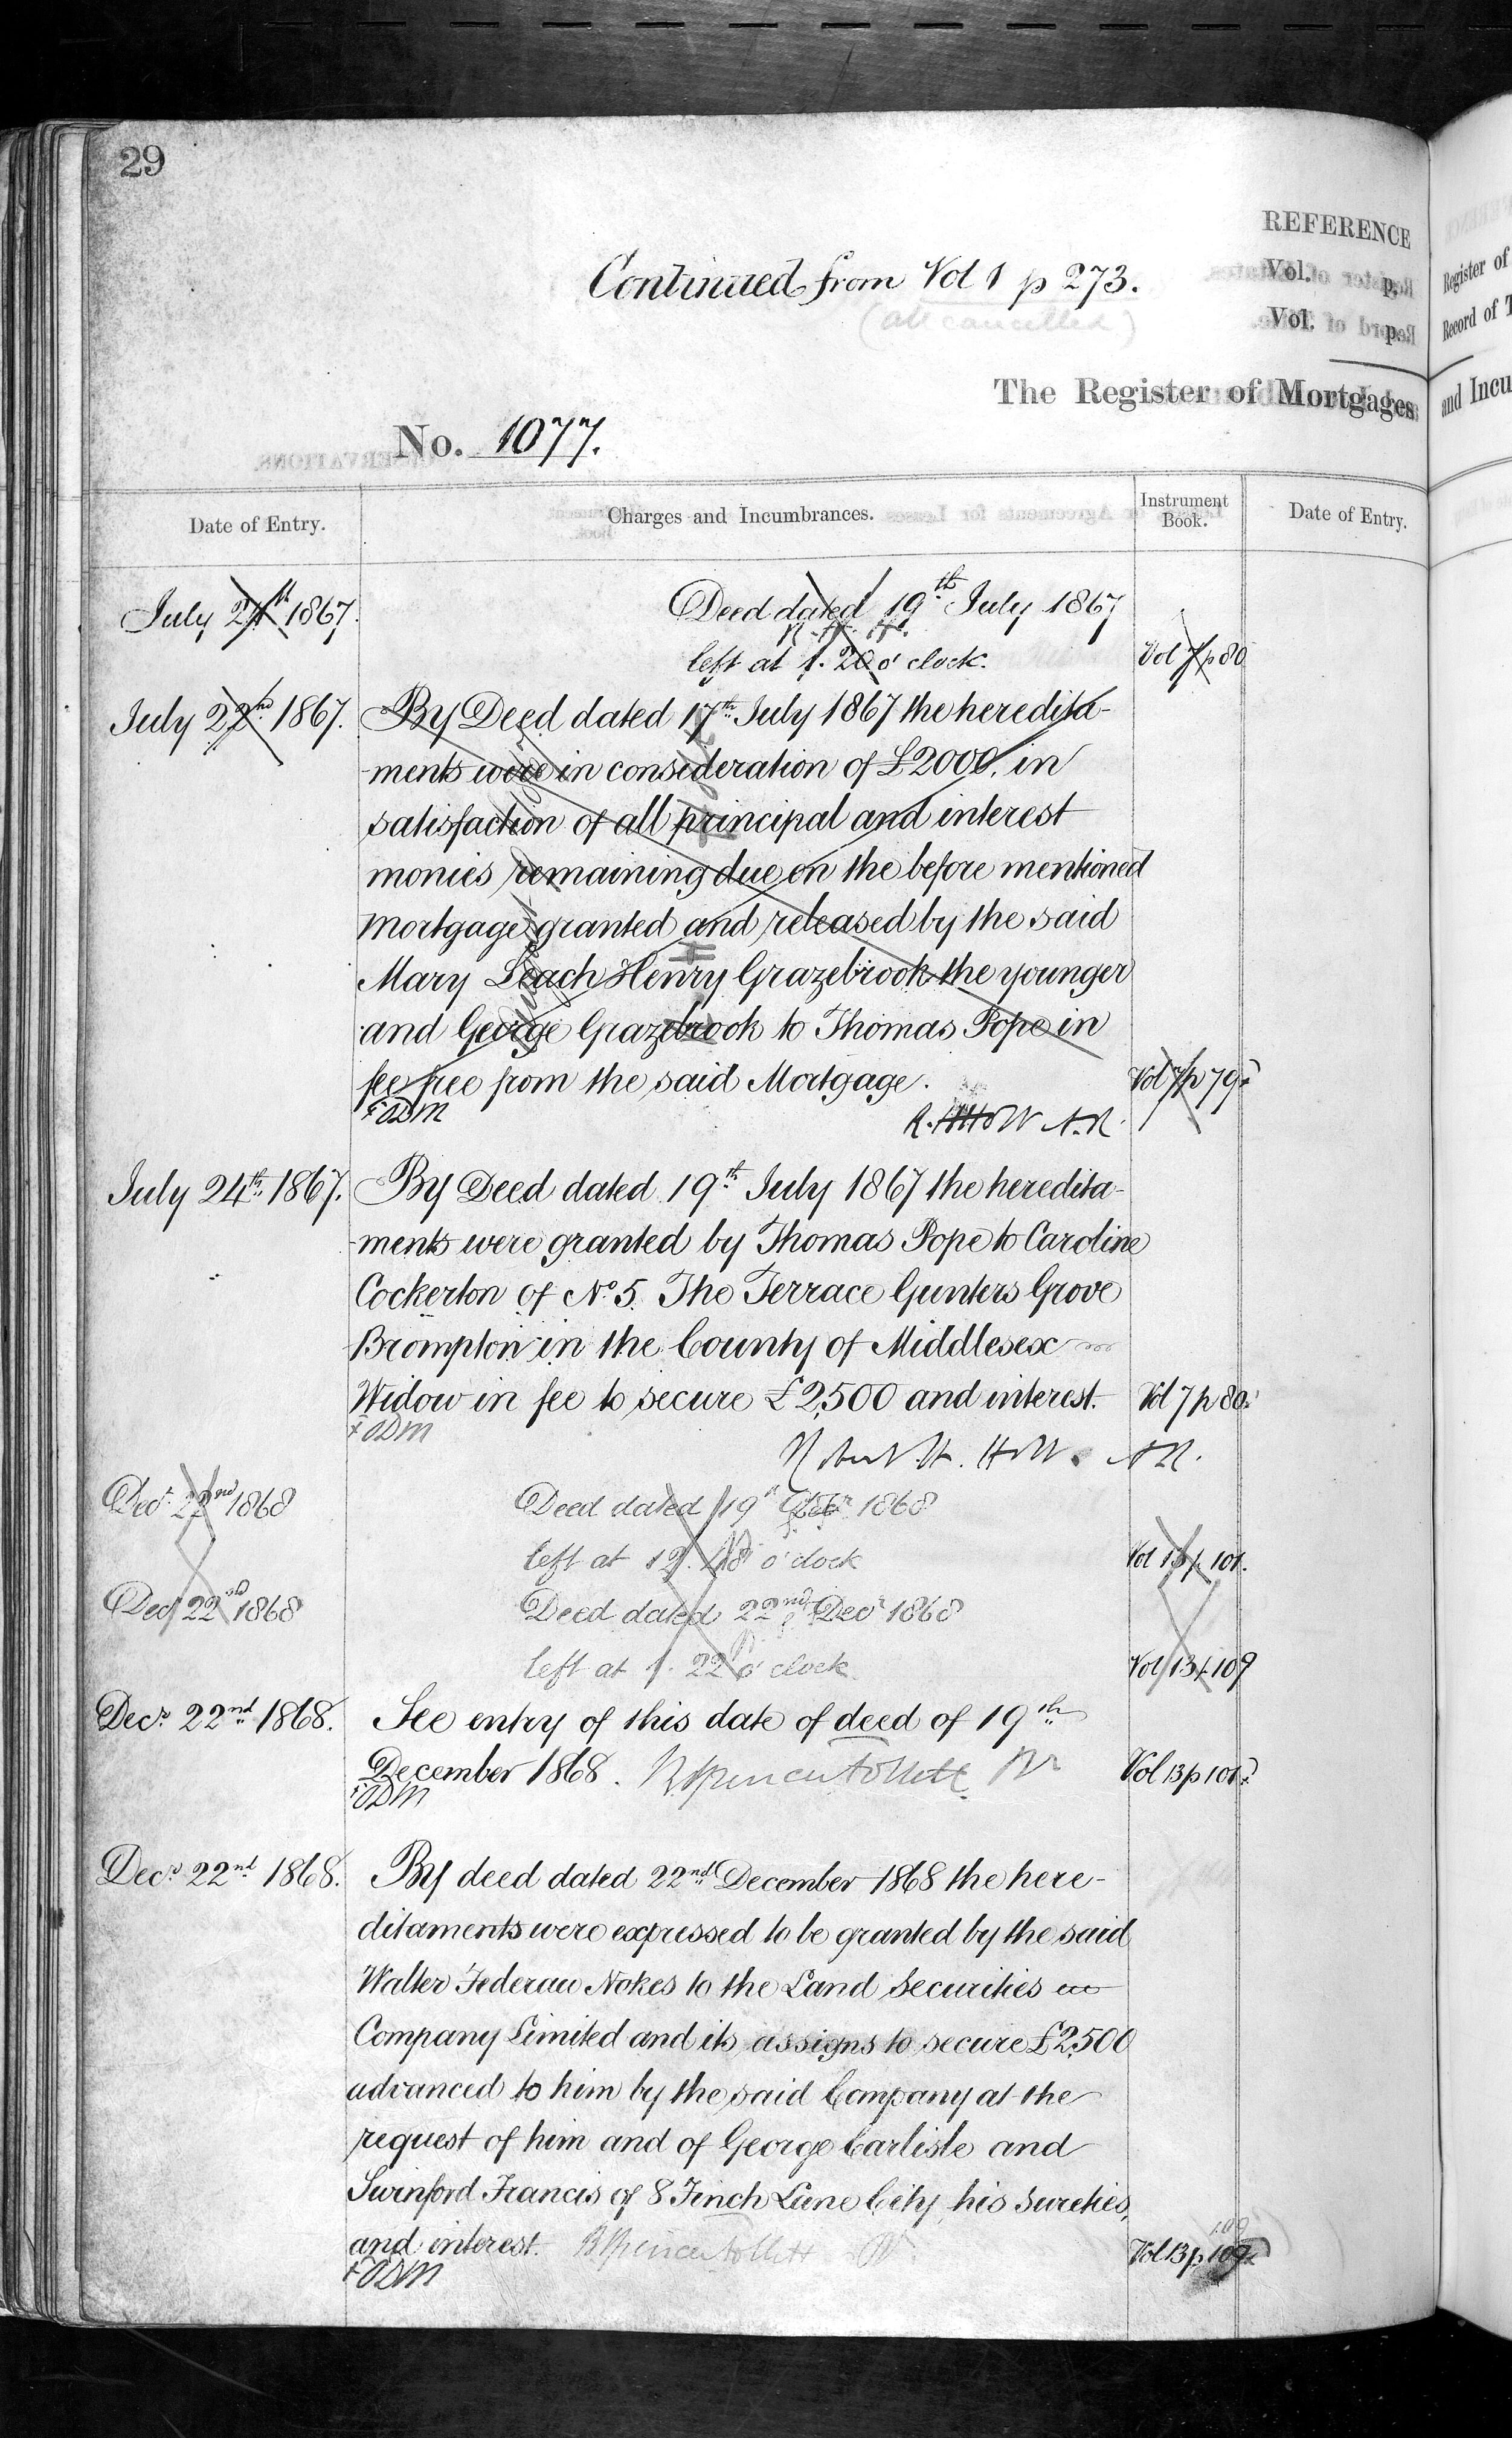 29
REFERENCE
Continued from Vol 1 p 273.
(all cancelled)
Vol. p.
Vol. p.
The Register of Mortgages
No. 1077.
Date of Entry. Charges and Incumbrances. Instrument Book. Date of Entry.
July 1867. Deed dated 19th July 1867
left at 1. 20 o'clock. Vol 7 p 80
July 22nd 1867. By Deed dated 17th July 1867 the heredita-
ments were in consideration of £2000. in
satisfaction of all principal and interest
monies remaining due on the before mentioned
Mortgage granted and released by the said
Mary Leach Henry Grazebrook the younger
and George Grazebrook to Thomas Pope in
fee free from the said Mortgage. Vol 7 p 79
ODM A.R.
July 24th 1867. By Deed dated 19th July 1867 the heredita-
ments were granted by Thomas Pope to Caroline
Cockerton of No. 5. The Terrace Gunters Grove
Brompton in the County of Middlesex
Widow in fee to secure £2,500 and interest. Vol 7 p 80
ODM
A.R.
Decr. 22nd 1868 Deed dated 19th Decr. 1868
left at 12. 18 o'clock Vol 13 p 101.
Decr 22nd 1868 Deed dated 22nd Decr 1868
left at 1. 22 o'clock Vol 13 p 109
Decr. 22nd 1868. See entry of this date of deed of 19th
December 1868. Vol 13 p 101
ODM
Decr. 22nd 1868. By deed dated 22nd December 1868 the here-
ditaments were expressed to be granted by the said
Walter Federau Nokes to the Land Securities
Company Limited and its assigns to secure £2,500
advanced to him by the said Company at the
request of him and of George Carlisle and
Swinford Francis of 8 Finch Lane City, his Sureties,
and interest. Vol 13 p 109
ODM
Register of
Record of T
and Incu